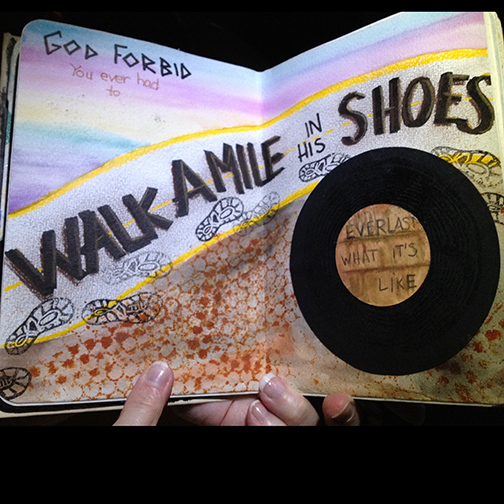 GOD FORBID
You ever had
to
WALK A MILE
IN
HIS
SHOES
EVERLAST
WHAT IT'S
LIKE